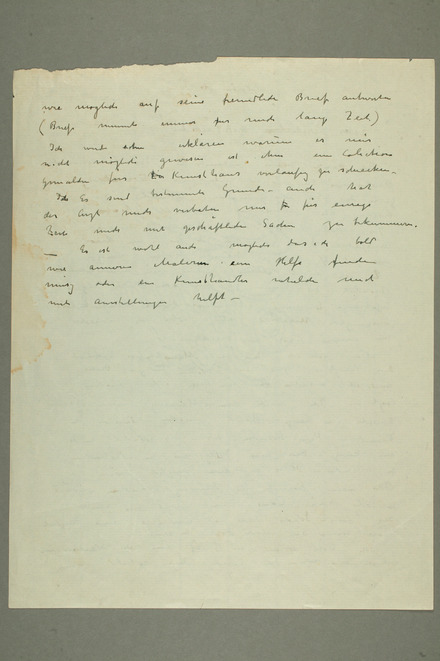 wie möglich auf seine freundliche Brief antworten
(Briefe nimmt immer für mich lang Zeit)
Ich wird schon erklären warum es mir
nicht möglich gewesen ist, eine Collection
Gemälden für Kunsthaus vorläufig zu schicken.
Es sind bestimmte Grunde. auch hat
der Arzt mich verboten mir für einige
Zeit mich mit geschäftlichen Sachen zu bekummern.
— Es ist wohl auch möglich das ich bald
wie anderen Malern ein Hilfe finden
muss oder ein Kunsthandler und
mit Ausstellungen helft —